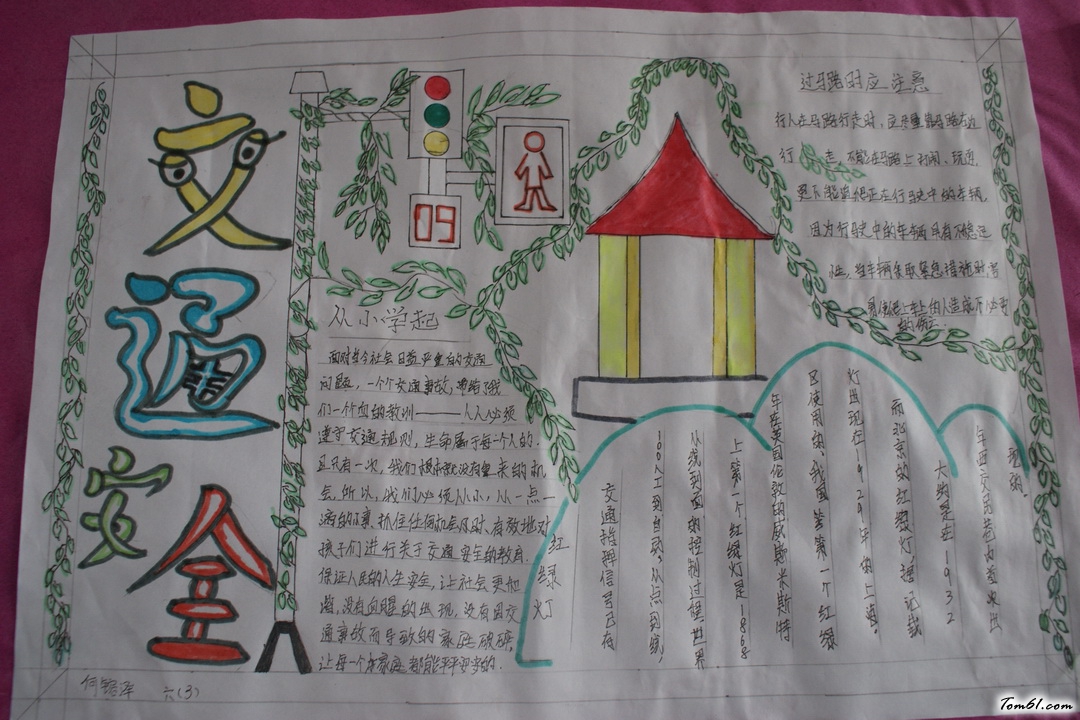 交通安全
09
从小学起
面对当今社会日益严重的交通
问题,一个个交通事故,带给了我
们一个血的教训————人人必须
遵守交通规则,生命属于每个人的.
且只有一次,我们根本就没有重来的机
会,所以,我们必须从小,从一点一
滴的小事、抓住任何机会及时、有效地对
孩子们进行关于交通安全的教育.
保证人民的人生安全,让社会更和
谐,没有血腥的出现,没有因交
通事故而导致的家庭破碎,
让每一个家庭都能平平安安的.
过马路时应注意
行人在马路行走时,应尽量靠马路右边
行走,不能在马路上打闹、玩逗,
更不能追赶正在行驶中的车辆,
因为行驶中的车辆具有不稳定
性,当车辆采取紧急措施时害
车上的人造成不必要
红绿灯
交通指挥信号已有
100人工到自动,从点到线,
从线到面的控制过程.世界
上第一个红绿灯是1868
年在英国伦敦的威斯米斯特
区使用的,我国第一个红绿
灯出现在1929年的上海.
而北京的红绿灯,据记载
大约是在1932
年西交民巷为首次出
现的.
何 泽 六(3)
Tom61.com